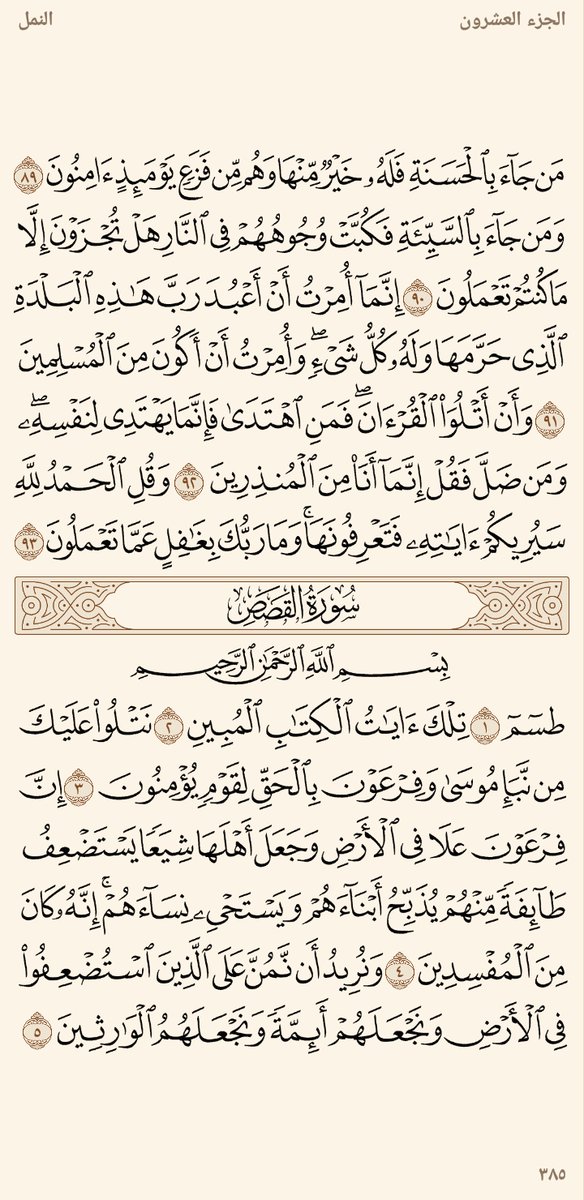 الجزء العشرون
النمل
مَن جَآءَ بِٱلْحَسَنَةِ فَلَهُۥ خَيْرٌ مِّنْهَا وَهُم مِّن فَزَعٍ يَوْمَئِذٍ ءَامِنُونَ ٨٩
وَمَن جَآءَ بِٱلسَّيِّئَةِ فَكُبَّتْ وُجُوهُهُمْ فِى ٱلنَّارِ هَلْ تُجْزَوْنَ إِلَّا
مَا كُنتُمْ تَعْمَلُونَ ٩٠ إِنَّمَآ أُمِرْتُ أَنْ أَعْبُدَ رَبَّ هَٰذِهِ ٱلْبَلْدَةِ
ٱلَّذِى حَرَّمَهَا وَلَهُۥ كُلُّ شَىْءٍ ۖ وَأُمِرْتُ أَنْ أَكُونَ مِنَ ٱلْمُسْلِمِينَ
٩١ وَأَنْ أَتْلُوَا۟ ٱلْقُرْءَانَ ۖ فَمَنِ ٱهْتَدَىٰ فَإِنَّمَا يَهْتَدِى لِنَفْسِهِۦ ۖ
وَمَن ضَلَّ فَقُلْ إِنَّمَآ أَنَا۠ مِنَ ٱلْمُنذِرِينَ ٩٢ وَقُلِ ٱلْحَمْدُ لِلَّهِ
سَيُرِيكُمْ ءَايَٰتِهِۦ فَتَعْرِفُونَهَا ۚ وَمَا رَبُّكَ بِغَٰفِلٍ عَمَّا تَعْمَلُونَ ٩٣
سُورَةُ القَصَصِ
بِسْمِ ٱللَّهِ ٱلرَّحْمَٰنِ ٱلرَّحِيمِ
طسٓمٓ ١ تِلْكَ ءَايَٰتُ ٱلْكِتَٰبِ ٱلْمُبِينِ ٢ نَتْلُوا۟ عَلَيْكَ
مِن نَّبَإِ مُوسَىٰ وَفِرْعَوْنَ بِٱلْحَقِّ لِقَوْمٍ يُؤْمِنُونَ ٣ إِنَّ
فِرْعَوْنَ عَلَا فِى ٱلْأَرْضِ وَجَعَلَ أَهْلَهَا شِيَعًا يَسْتَضْعِفُ
طَآئِفَةً مِّنْهُمْ يُذَبِّحُ أَبْنَآءَهُمْ وَيَسْتَحْىِۦ نِسَآءَهُمْ ۚ إِنَّهُۥ كَانَ
مِنَ ٱلْمُفْسِدِينَ ٤ وَنُرِيدُ أَن نَّمُنَّ عَلَى ٱلَّذِينَ ٱسْتُضْعِفُوا۟
فِى ٱلْأَرْضِ وَنَجْعَلَهُمْ أَئِمَّةً وَنَجْعَلَهُمُ ٱلْوَٰرِثِينَ ٥
٣٨٥